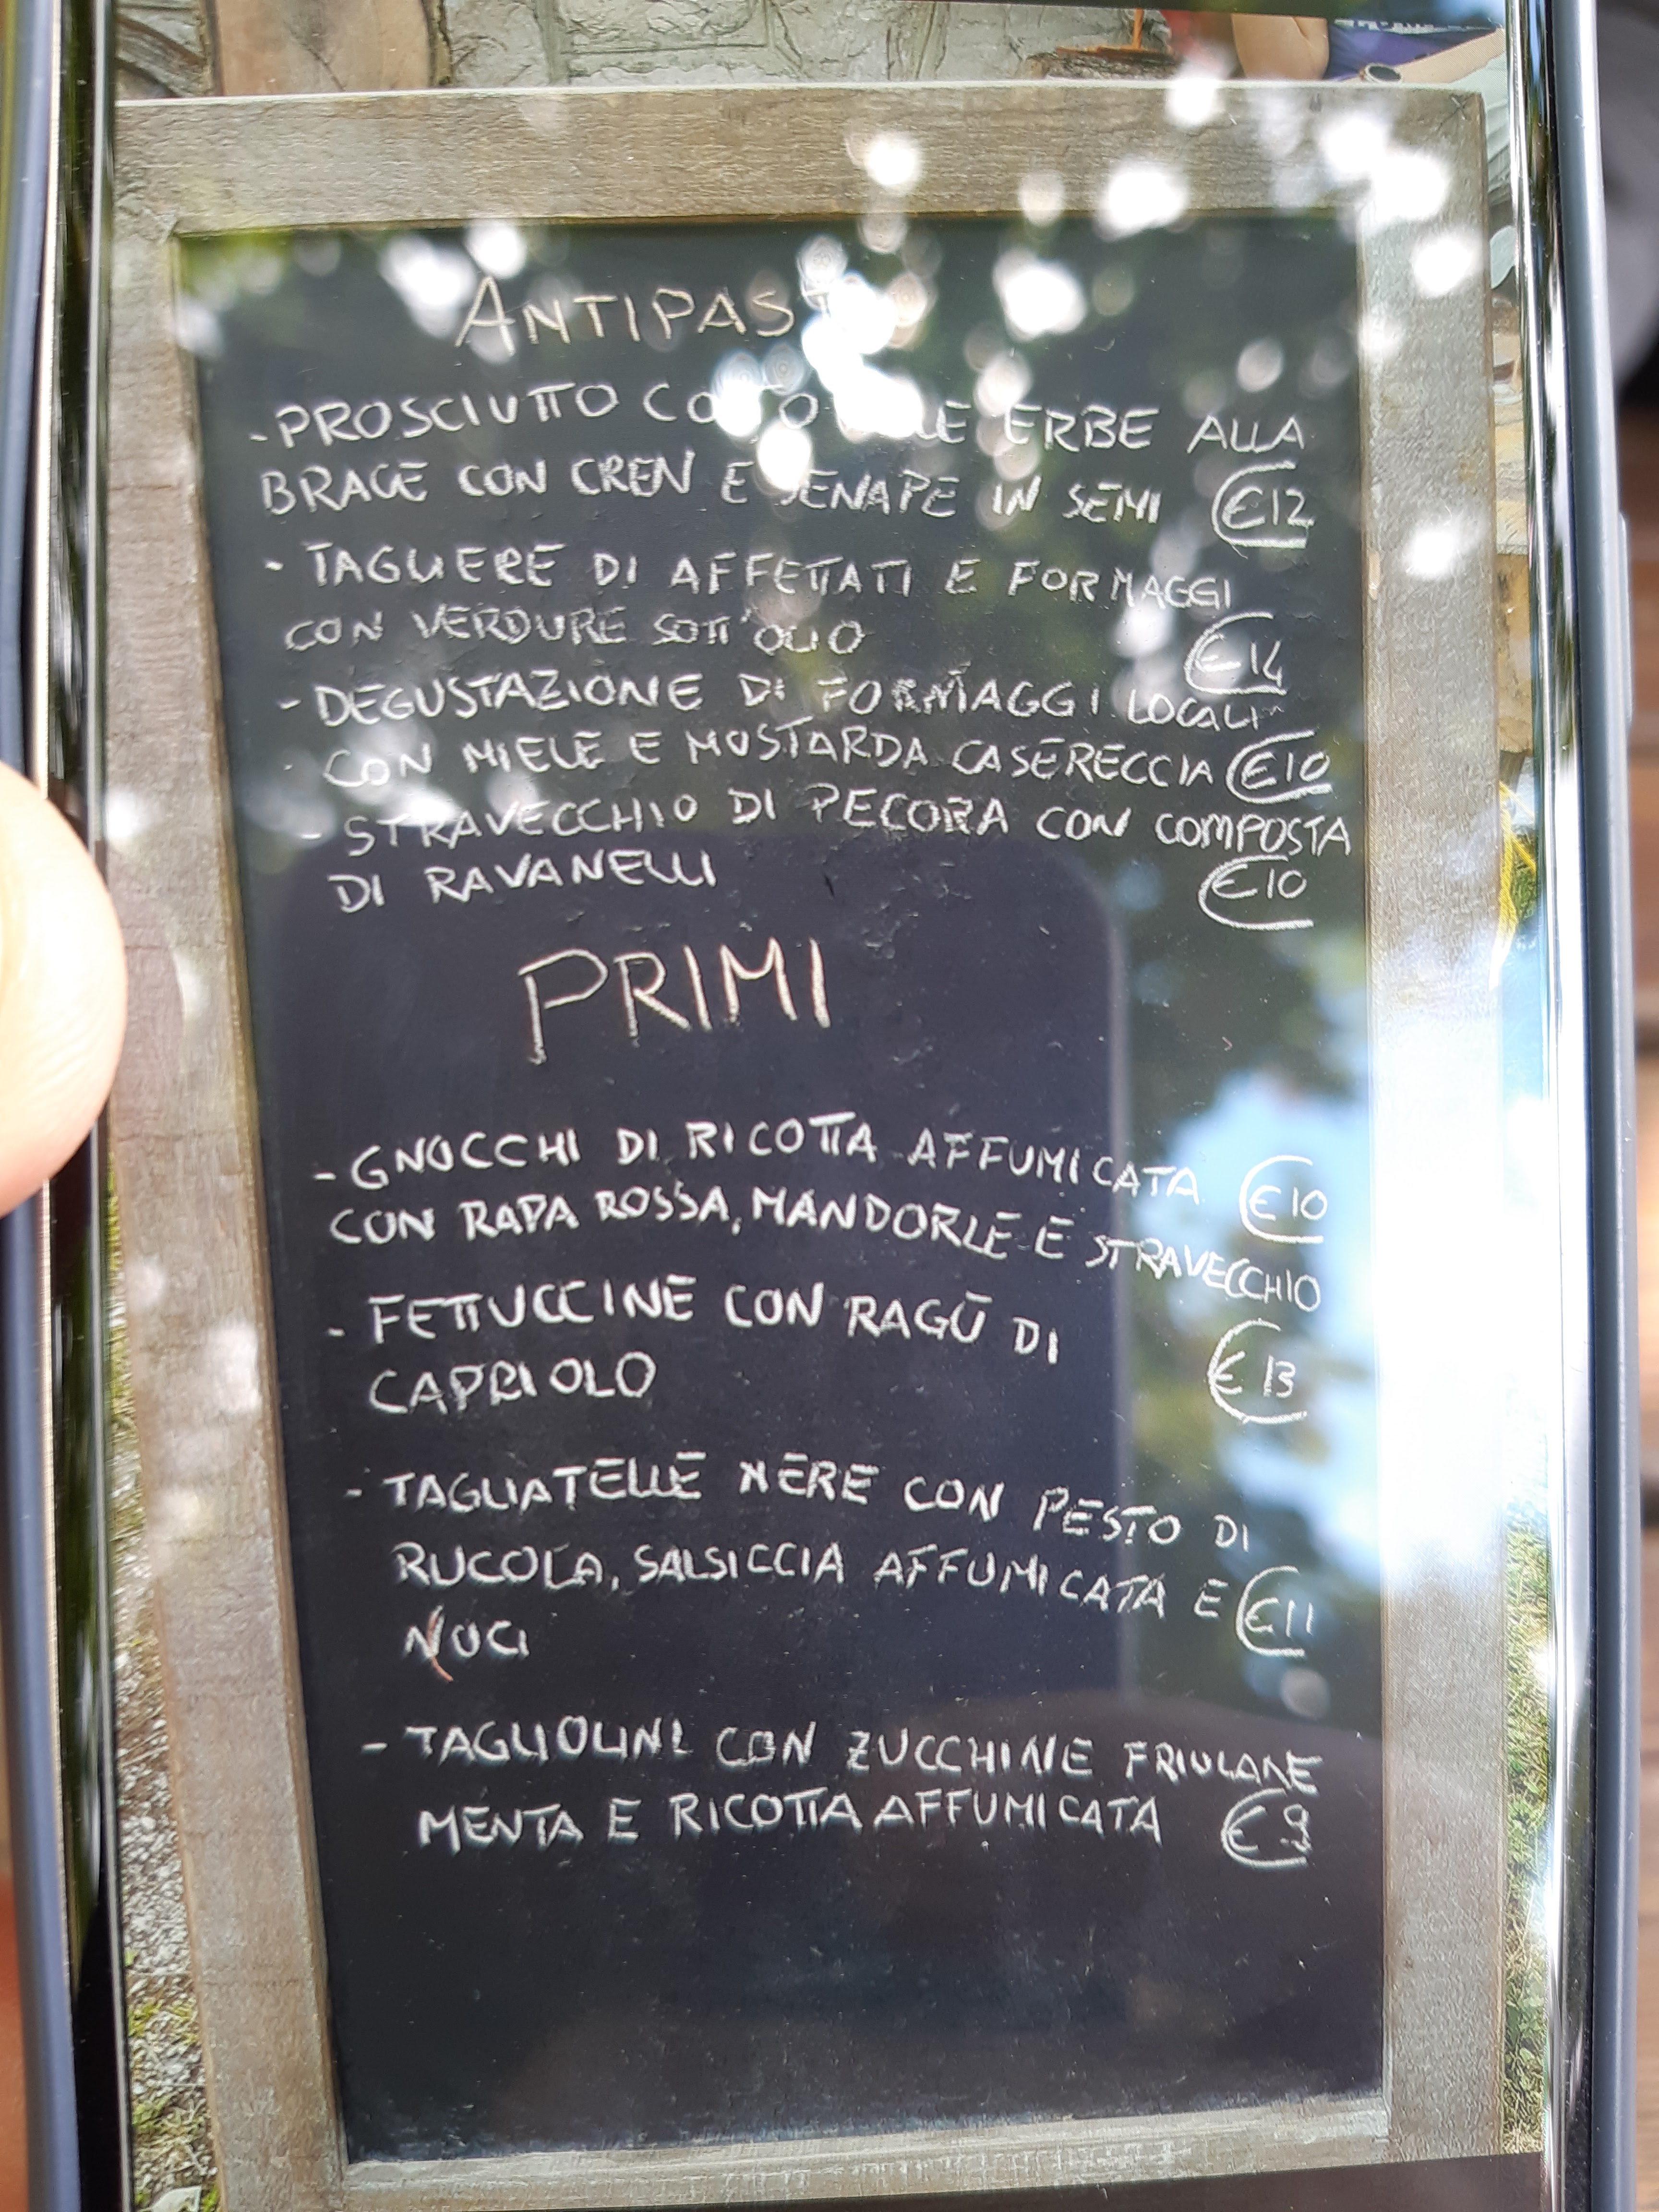 ANTIPASTI
- PROSCIUTTO COTTO ALLE ERBE ALLA
BRACE CON CREN E SENAPE IN SEMI €12
- TAGLIERE DI AFFETTATI E FORMAGGI
CON VERDURE SOTT'OLIO €14
- DEGUSTAZIONE DI FORMAGGI LOCALI
CON MIELE E MOSTARDA CASERECCIA €10
- STRAVECCHIO DI PECORA CON COMPOSTA
DI RAVANELLI €10
PRIMI
- GNOCCHI DI RICOTTA AFFUMICATA €10
CON RAPA ROSSA, MANDORLE E STRAVECCHIO
- FETTUCCINE CON RAGÙ DI
CAPRIOLO €13
- TAGLIATELLE NERE CON PESTO DI
RUCOLA, SALSICCIA AFFUMICATA E €11
NOCI
- TAGLIOLINI CON ZUCCHINE FRIULANE
MENTA E RICOTTA AFFUMICATA €9